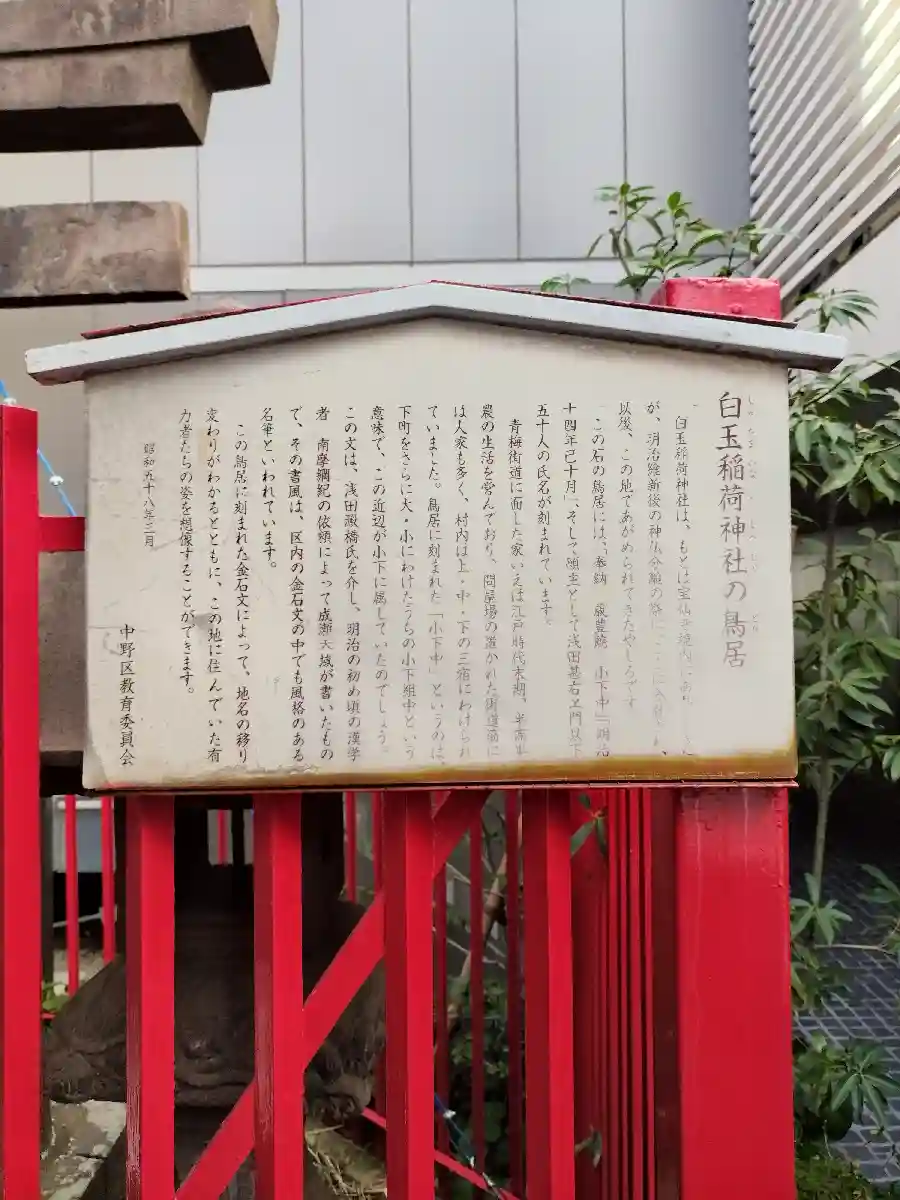 白玉稲荷神社の鳥居
白玉稲荷神社は、もとは宝仙寺境内にあり
が、明治維新後の神仏分離の際に
以後、この地であがめられてきたやしろです
この石の鳥居には、「奉納 小下中」「明治
十四年己十月」、そして願主として浅田甚右ヱ門以下
五十人の氏名が刻まれています。
青梅街道に面した家いえは江戸時代末期、半商半
農の生活を営んでおり、問屋場の置かれた街道沿に
は人家も多く、村内は上・中・下の三宿にわけられ
ていました。鳥居に刻まれた「小下中」というのは、
下町をさらに大・小にわけたうちの小下組中という
意味で、この近辺が小下に属していたのでしょう。
この文は、浅田 橋氏を介し、明治の初め頃の漢学
者 南摩綱紀の依頼によって成瀬大域が書いたもの
で、その書風は、区内の金石文の中でも風格のある
名筆といわれています。
この鳥居に刻まれた金石文によって、地名の移り
変わりがわかるとともに、この地に住んでいた有
力者たちの姿を想像することができます。
昭和五十八年三月
中野区教育委員会